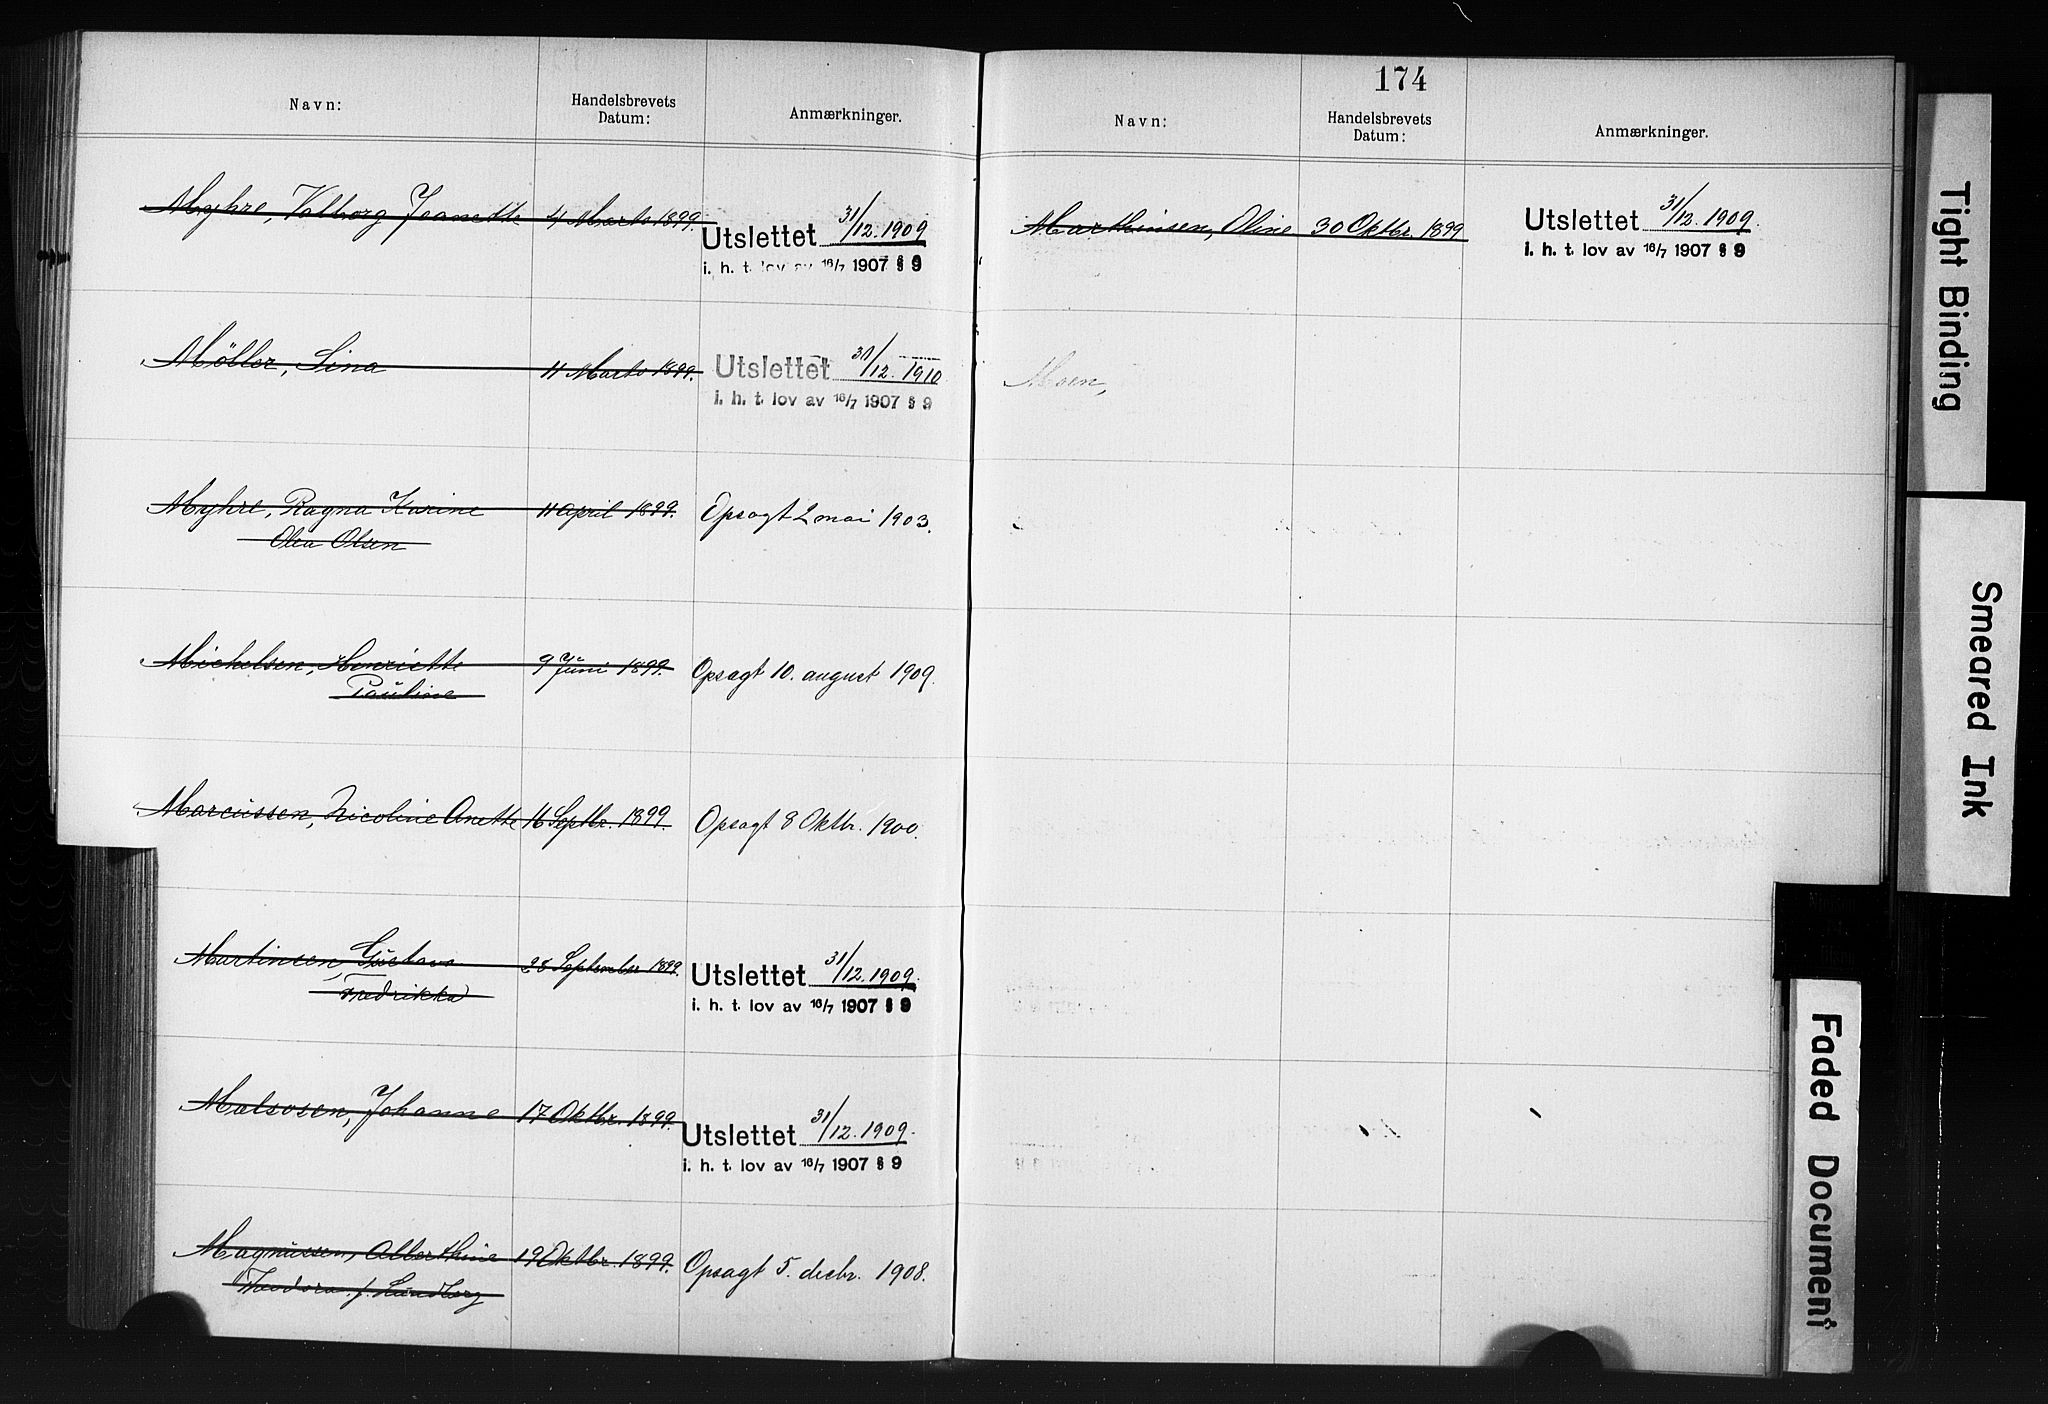 Navn:
Handelsbrevets
Datum:
Anmærkninger.
Myhre, Valborg Jeanette 4 Marts 1899.
Utslettet 31/12.1909
i. h. t. lov av 16/7 1907 § 9
Möller, Lina 11 Marts 1899.
Utslettet 31/12.1910
i. h. t. lov av 16/7 1907 § 9
Myhre, Ragna Karine 11 april 1899. Opsagt 2 mai 1903.
Olea Olsen
Michelsen, Henriette 9 Juni 1899. Opsagt 10. august 1909.
Pauline
Marcussen, Nicoline Anette 16 Septbr. 1899. Opsagt 8 Oktbr. 1900.
Martinsen, Gustava 28 September 1899.
Fredrikka
Utslettet 31/12.1909.
i. h. t. lov av 16/7 1907 § 9
Johanne 17 Oktbr. 1899.
Utslettet 31/12.1909.
i. h. t. lov av 16/7 1907 § 9
Magnussen, Alberthine 19 Oktbr. 1899. Opsagt 5. decbr. 1908.
Theodora f. Lundberg
174
Navn:
Handelsbrevets
Datum:
Anmærkninger.
Marthinsen, Oline 30 Oktbr. 1899
Utslettet 31/12.1909.
i. h. t. lov av 16/7 1907 § 9
Moen,
Tight Binding
Smeared Ink
Faded Document